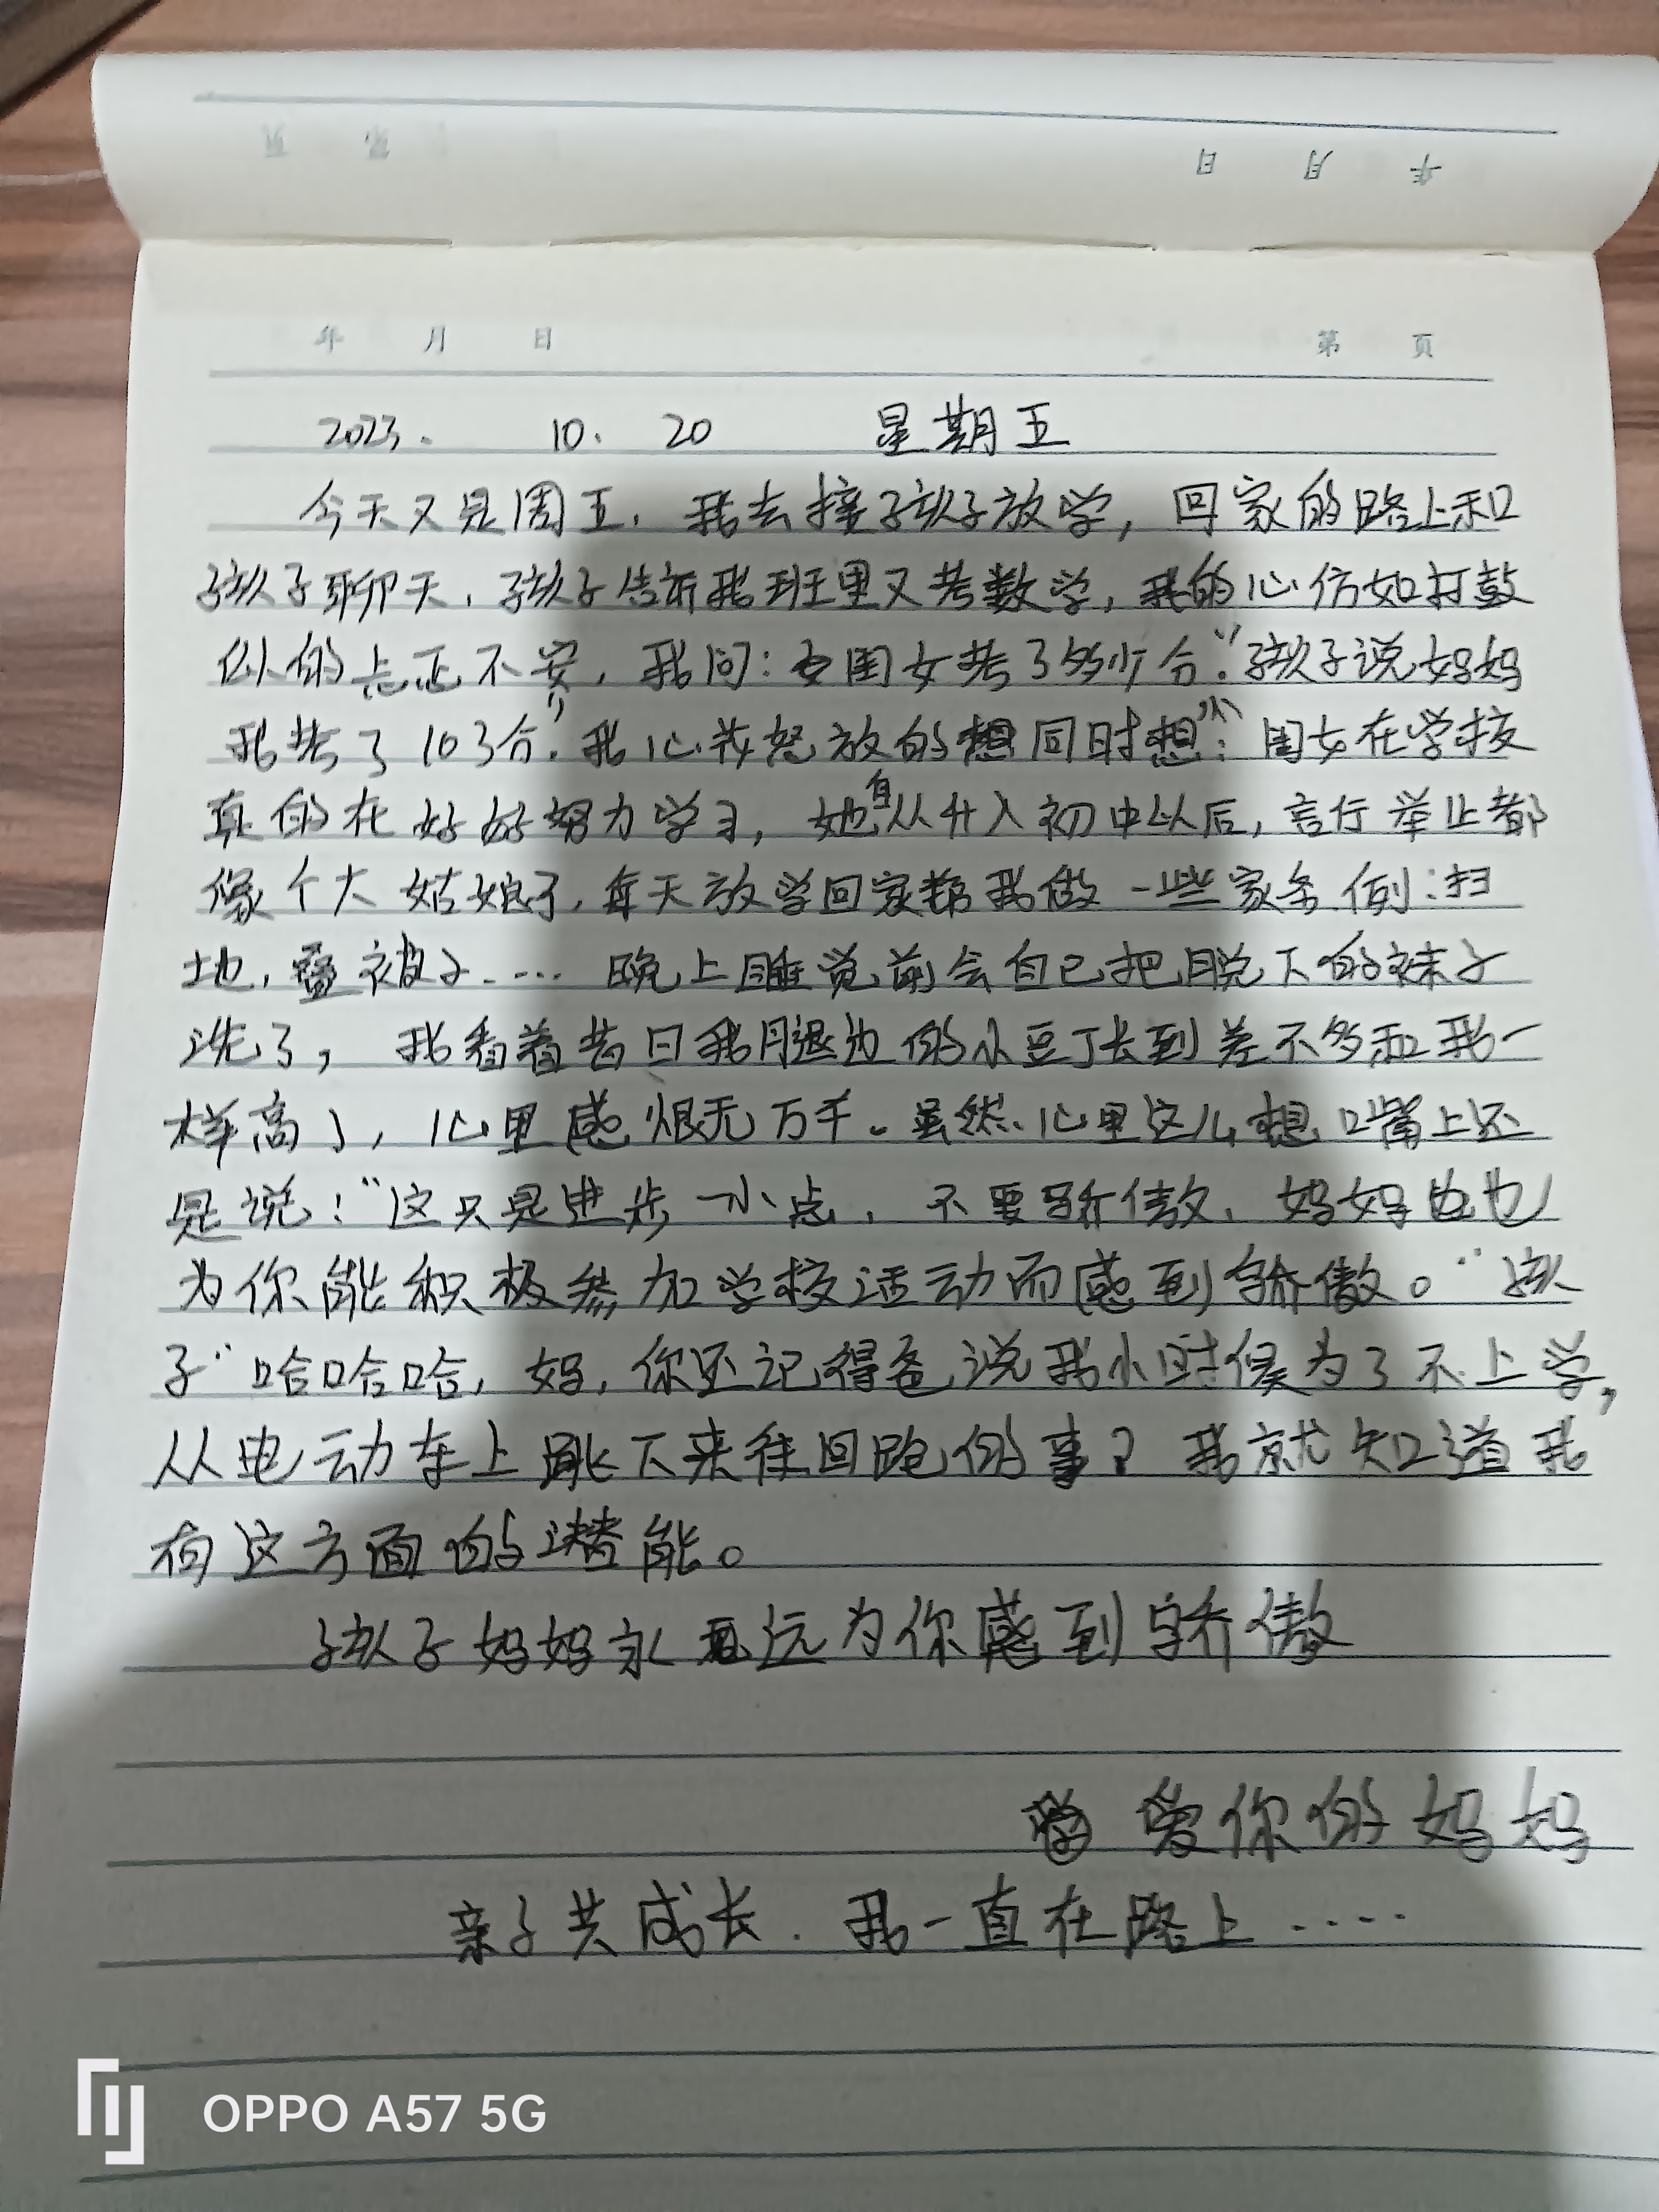 年 月 日
第 页
年 月 日 第 页
2023. 10. 20 星期五
今天又是周五，我去接孩子放学，回家的路上和
孩子聊天，孩子告诉我班里又考数学，我的心仿如打鼓
似的忐忑不安，我问：闺女考了多少分"孩子说妈妈
我考了103分"，我心花怒放的同时想："闺女在学校
真的在好好努力学习，她自从升入初中以后，言行举止都
像个大姑娘了，每天放学回家帮我做一些家务例：扫
地，叠被子..... 晚上睡觉前会自己把脱下的袜子
洗了，我看着昔日我腿边的小豆丁长到差不多和我一
样高了，心里感恨无万千。虽然心里这么想嘴上还
是说："这只是进步一小点，不要骄傲，妈妈也
为你能积极参加学校活动而感到骄傲。"孩
子"哈哈哈，妈，你还记得爸说我小时候为了不上学，
从电动车上跳下来往回跑的事？我就知道我
有这方面的潜能。
孩子妈妈永远为你感到骄傲
爱你的妈妈
亲子共成长．我一直在路上.....
OPPO A57 5G